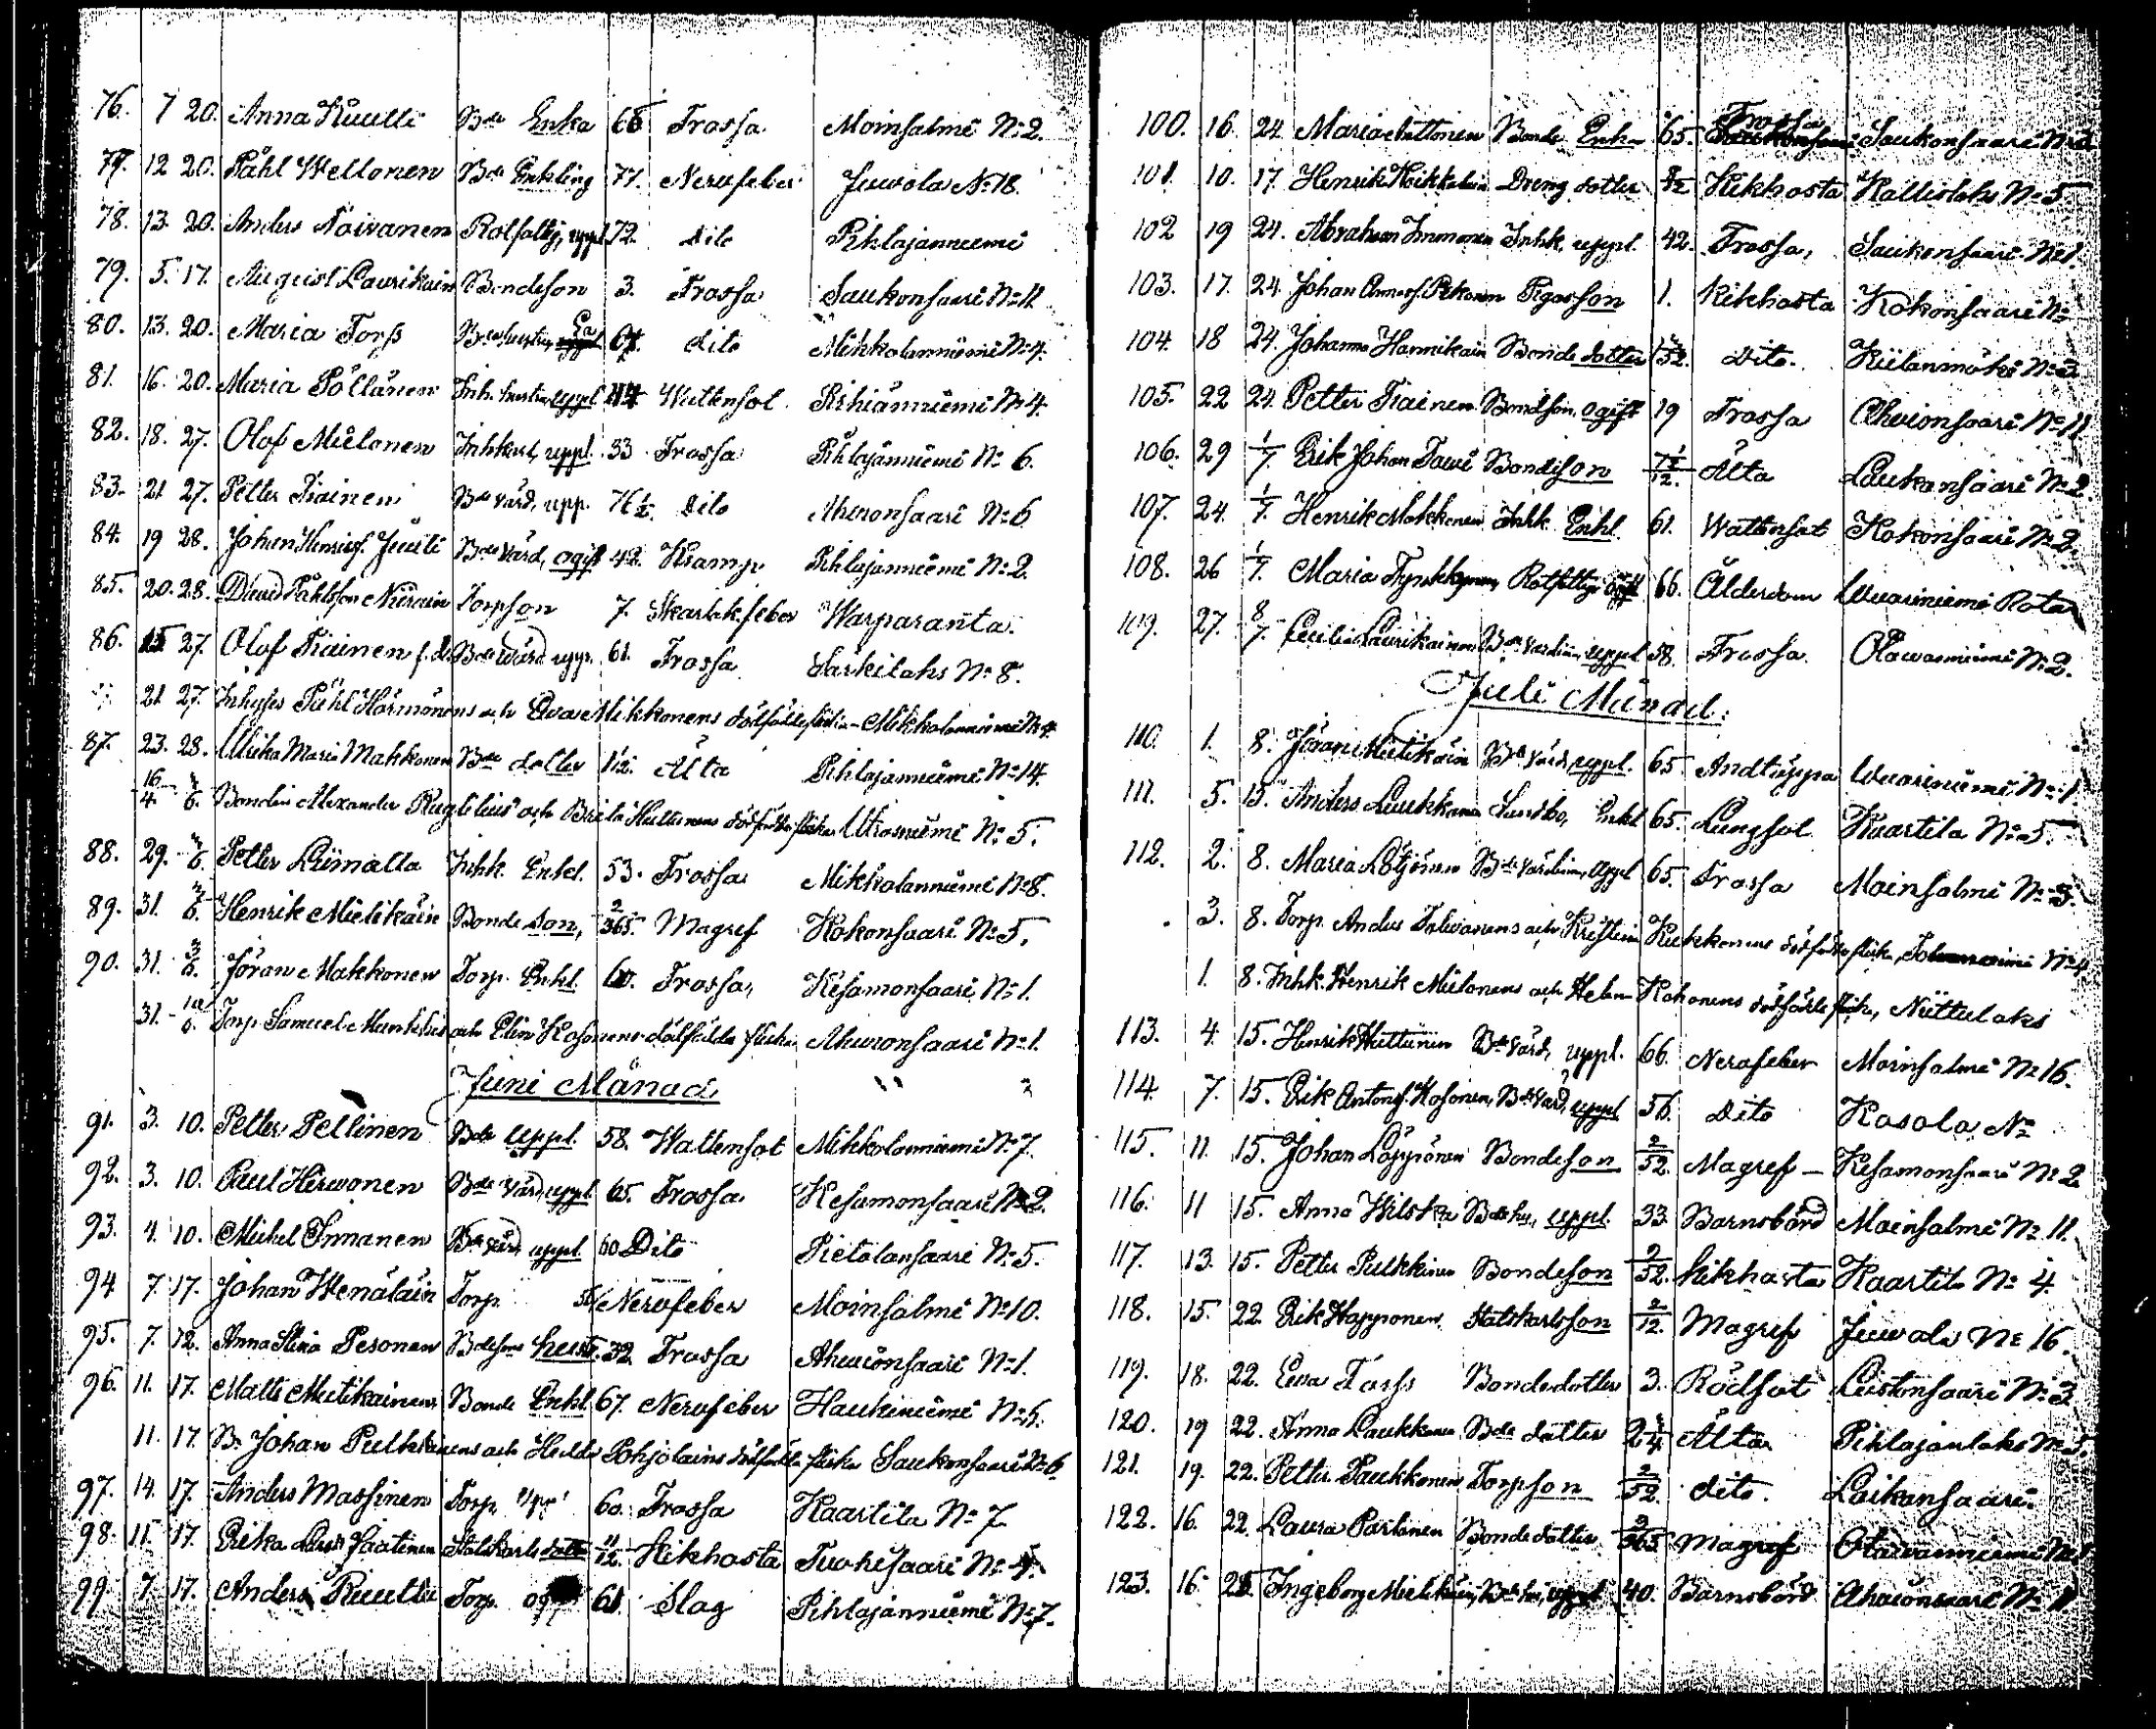 76. 7 20. Anna Ruutti Bde Enka 66 Frossa Moinsalmi No 2.
77. 12 20. Påhl Wellonen Bde Enkling 77. Nervfeber Juvola No 18.
78. 13. 20. Anders Väisänen uppl 72. dito Pihlajaniemi
79. 5. 17. August Laurikain Bondeson 3. Frossa Saukonsaari No 11
80. 13. 20. Maria Torss dito Mikkolanniemi No 4.
81. 16. 20. Maria Pöllänen Inh. uppl Wattusot Pihlajanniemi No 4.
82. 18. 27. Olof Mielonen Inhkarl, uppl. 33 Frossa Pihlajanniemi No 6.
83. 21 27. Petter Tiainen Bde värd, upp. 76 1/2. Dito Ahvionsaari No 6
84. 19 28. Johan Henriks. Juuti Bde värd, ogift 42. Kramp Pihlajanniemi No 2.
85. 20. 28. David Påhlsson Niirain Torpson 7. Skarlakfeber Warparanta.
86. 15 27. Olof Tiainen Bde värd uppl. 61. Frossa Särkilaks No 8.
21 27. Inhyses Påhl Härmönens och Eva Mikkonens dödfödde flicka - Mikkolanniemi No 4.
87. 23. 28. Ulrika Maria Makkonen Bde dotter 1 1/2. Ålta Pihlajanniemi No 14.
16/4. 2/6. Bonden Alexander och Brita Huttunens dödfödde flicka Utrasniemi No 5.
88. 29. 2/6. Petter Liimatta Inhk. Enkl. 53. Frossa Mikkolanniemi No 8.
89. 31. 3/6. Henrik Mielikäin Bonde son, 2/365. Magref Kokonsaari No 5.
90. 31. 3/6. Jöran Makkonen Torp. Enkl. 60. Frossa, Kesamonsaari No 1.
31. 10/6. Torp. Samuel och Elin Kosonens dödfödda flicka Ahvionsaari No 1.
Juni Månad.
91. 3. 10. Petter Pellinen Bde uppl. 58. Wattensot Mikkolanniemi No 7.
92. 3. 10. Paul Hirvonen Bde värd, uppl. 65. Frossa Kesamonsaari No 2.
93. 4. 10. Michel Immanen Bde värd, uppl. 60 Dito Pietolansaari No 5.
94 7. 17. Johan Wenäläin Torp. Nervfeber Moinsalmi No 10.
95. 7. 12. Anna Stina Pesonen Bdesons hust. 32 Frossa Ahvionsaari No 1.
96. 11. 17. Matts Mutikainen Bonde Enkl 67. Nervfeber Haukiniemi No 5.
11. 17. B. Johan Pulkkinens och Hedda Pohjolains dödfödde flicka Saukonsaari No 6.
97. 14. 17. Anders Massinen Torp. 60. Frossa Kaartila No 7
98. 11. 17. Erika Lovis Jaatinen Statskarls dotter 11/12. Kikhosta Tuohisaari No 4.
99 7. 17. Anders Ruutti Torp. 61. Slag Pihlajanniemi No 7.
100. 16. 24. Maria Mattonen Bonde Enka 65. Frossa Saukonsaari No 2
101. 10. 17. Henrik Heikkelin Dreng dotter 8/12 Kikhosta Kallislaks No 5
102 19 24. Abraham Immonen Inhk. uppl. 42. Frossa, Saukonsaari No 1.
103. 17. 24. Johan Anders. Pekonen Pigasson 1. Kikhosta Kokonsaari No
104. 18 24. Johanna Hannikain Bonde dotter Dito. Kiilanmäki No 3
105. 22 24. Petter Tiainen Bondson, ogift 19 Frossa Ahvionsaari No 11
106. 29 1/7. Erik Johan Bondeson Ålta Laukansaari No 2
107. 24. 1/7. Henrik Makkonen Inhk. Enkl. 61. Wattensot Kokonsaari No 2.
108. 26 1/7. Maria 66. Ålderdom Wuoriniemi Rota
109. 27. 8/7. Cecilia Laurikainen Bde värdin, uppl 58. Frossa Otavaniemi No 2.
Juli Månad.
110. 1. 8. Jöran Mutikain Bde värd, uppl. 65 Andtäppa Wuoriniemi No 1.
111. 5. 15. Anders Luukkanen Enkl 65. Lungsot Kaartila No 5.
112. 2. 8. Maria Lötjönen Bde värdin, uppl 65. Frossa Moinsalmi No 3.
3. 8. Torp. Anders Tolvanens och Kristina Kukkonens dödfödde flicka, No 4
1. 8. Inhk. Henrik Mielonens och Helena Kokonens dödfödde flicka, Niittulaks
113. 4. 15. Henrik Huttunen Bde värd, uppl. 66. Nervfeber Moinsalmi No 16.
114. 7. 15. Erik Antons. Kosonen, Bde värd, uppl 56. Dito Kosola No
115. 11. 15. Johan Löppönen Bondeson 2/52. Magref - Kesamonsaari No 2
116. 11 15. Anna Hilska Bde hu, uppl. 33 Barnsbörd Moinsalmi No 11.
117. 13. 15. Petter Pulkkinen Bondeson 2/52. Kikhosta Kaartila No 4.
118. 15. 22. Erik Happonen, Statskarlsson 2/12. Magref Juvola No 16.
119. 18. 22. Eva Torss Bondedotter 3. Rödsot Liistonsaari No 3
120. 19 22. Anna Laukkanen Bde dotter 2 1/4. Ålta Pihlajanlaks No 5.
121. 19. 22. Petter Paukkonen Torpson 2/52. dito. Loikansaari
122. 16. 22. Laura Partanen Bonde dotter 3/365 Magref Otavanniemi
123. 16. 25. Ingeborg Mielikäin, Bde hu, uppl 40. Barnsbörd Ahvionsaari No 11.